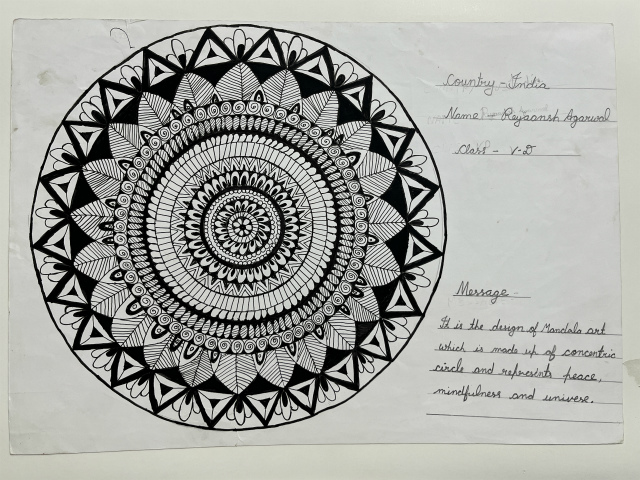 Country - India
Name Reyaansh Agarwal
Class - V-D
Message -
It is the design of Mandala art
which is made up of concentric
circle and represents peace,
mindfulness and universe.